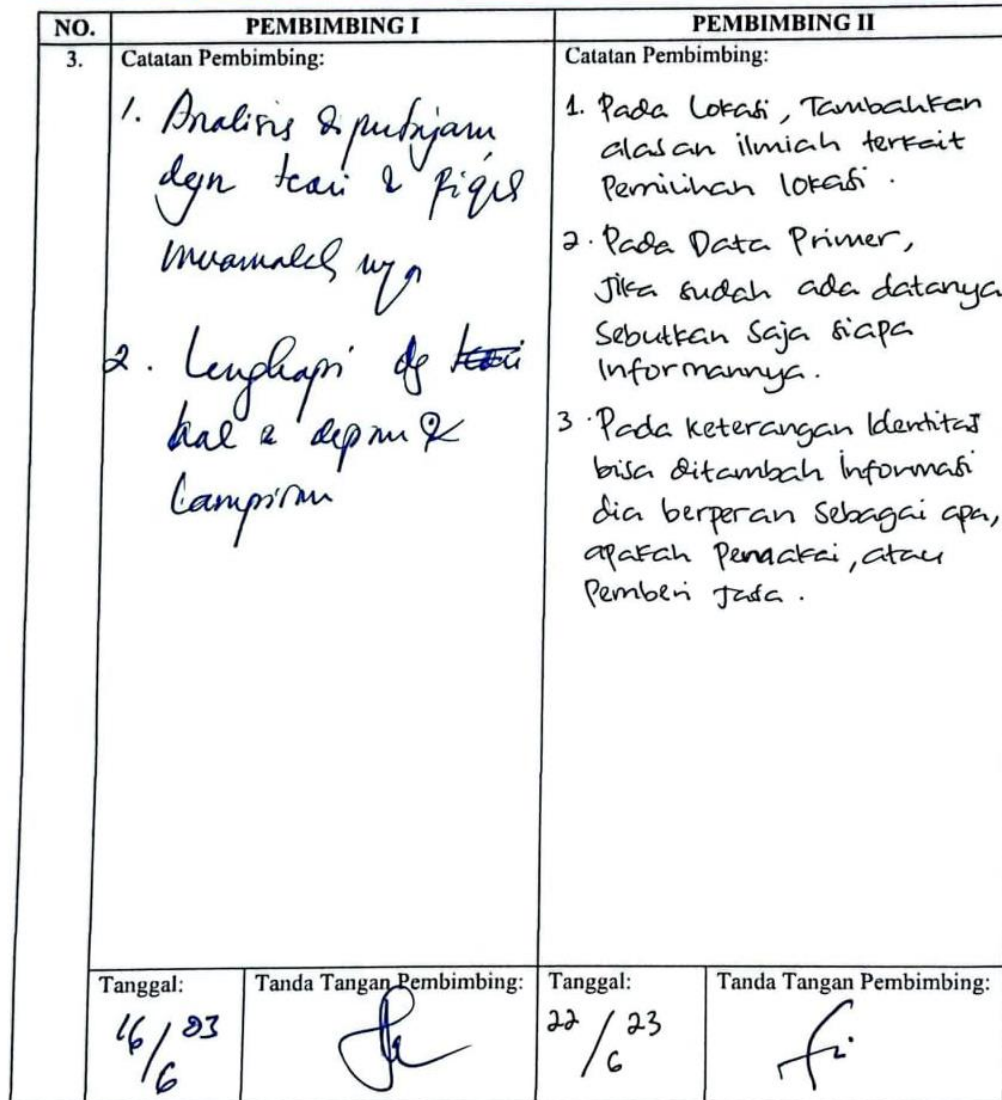 NO.
PEMBIMBING I
PEMBIMBING II
3.
Catatan Pembimbing:
1. Analisis
teori & Fiqis
2. Lengkapi dg
hal 2 depan &
Lampiran
Catatan Pembimbing:
1. Pada Lokasi, Tambahkan
alasan ilmiah terkait
Pemilihan lokasi.
2. Pada Data Primer,
Jika sudah ada datanya
Sebutkan Saja siapa
Informannya.
3. Pada keterangan Identitas
bisa ditambah Informasi
dia berperan Sebagai apa,
apakah Pemakai, atau
Pemberi Jasa.
Tanggal:
16/6 23
Tanda Tangan Pembimbing:
Tanggal:
22/6 23
Tanda Tangan Pembimbing: